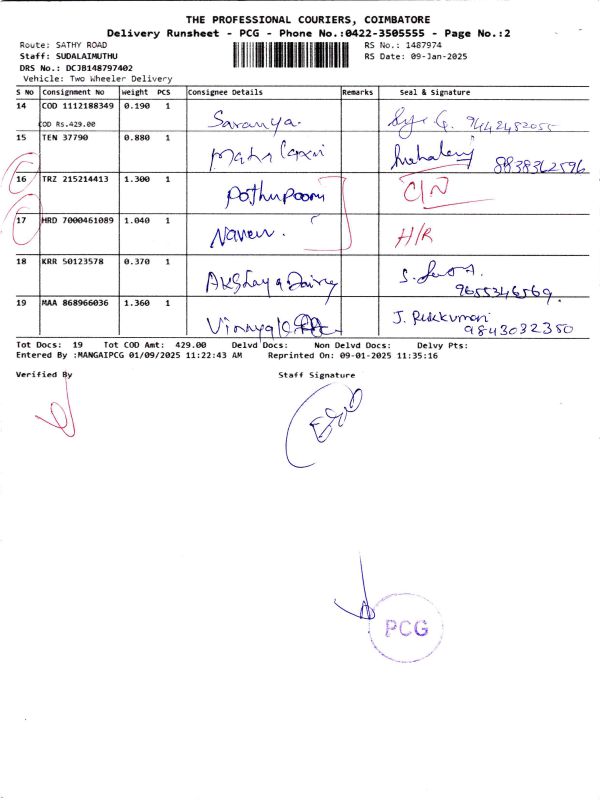 THE PROFESSIONAL COURIERS, COIMBATORE
Delivery Runsheet - PCG - Phone No.:0422-3505555 - Page No.:2
Route: SATHY ROAD RS No.: 1487974
Staff: SUDALAIMUTHU RS Date: 09-Jan-2025
DRS No.: DCJB148797402
Vehicle: Two Wheeler Delivery
S No Consignment No Weight PCS Consignee Details Remarks Seal & Signature
14 COD 1112188349 0.190 1 Saranya. 9442482055
COD Rs.429.00
15 TEN 37790 0.880 1 8838362596
16 TRZ 215214413 1.300 1 Pothupoorn
17 HRD 7000461089 1.040 1 Naveen. H/R
18 KRR 50123578 0.370 1 Akshaya Dairy 9655346569.
19 MAA 868966036 1.360 1 J. Rukkumani
9843032350
Tot Docs: 19 Tot COD Amt: 429.00 Delvd Docs: Non Delvd Docs: Delvy Pts:
Entered By :MANGAIPCG 01/09/2025 11:22:43 AM Reprinted On: 09-01-2025 11:35:16
Verified By Staff Signature
PCG